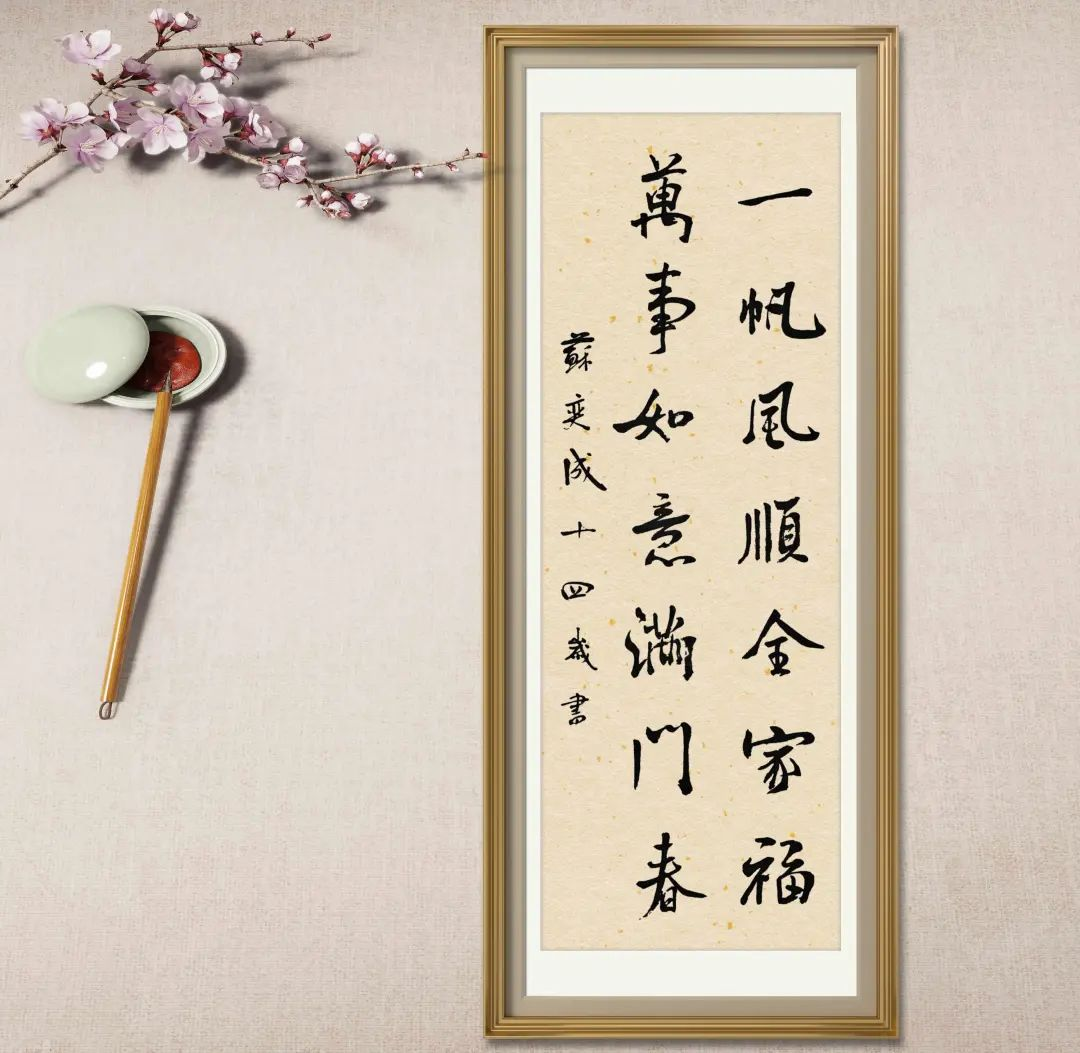 一帆風順全家福
萬事如意滿門春
蘇奕成十四歲書